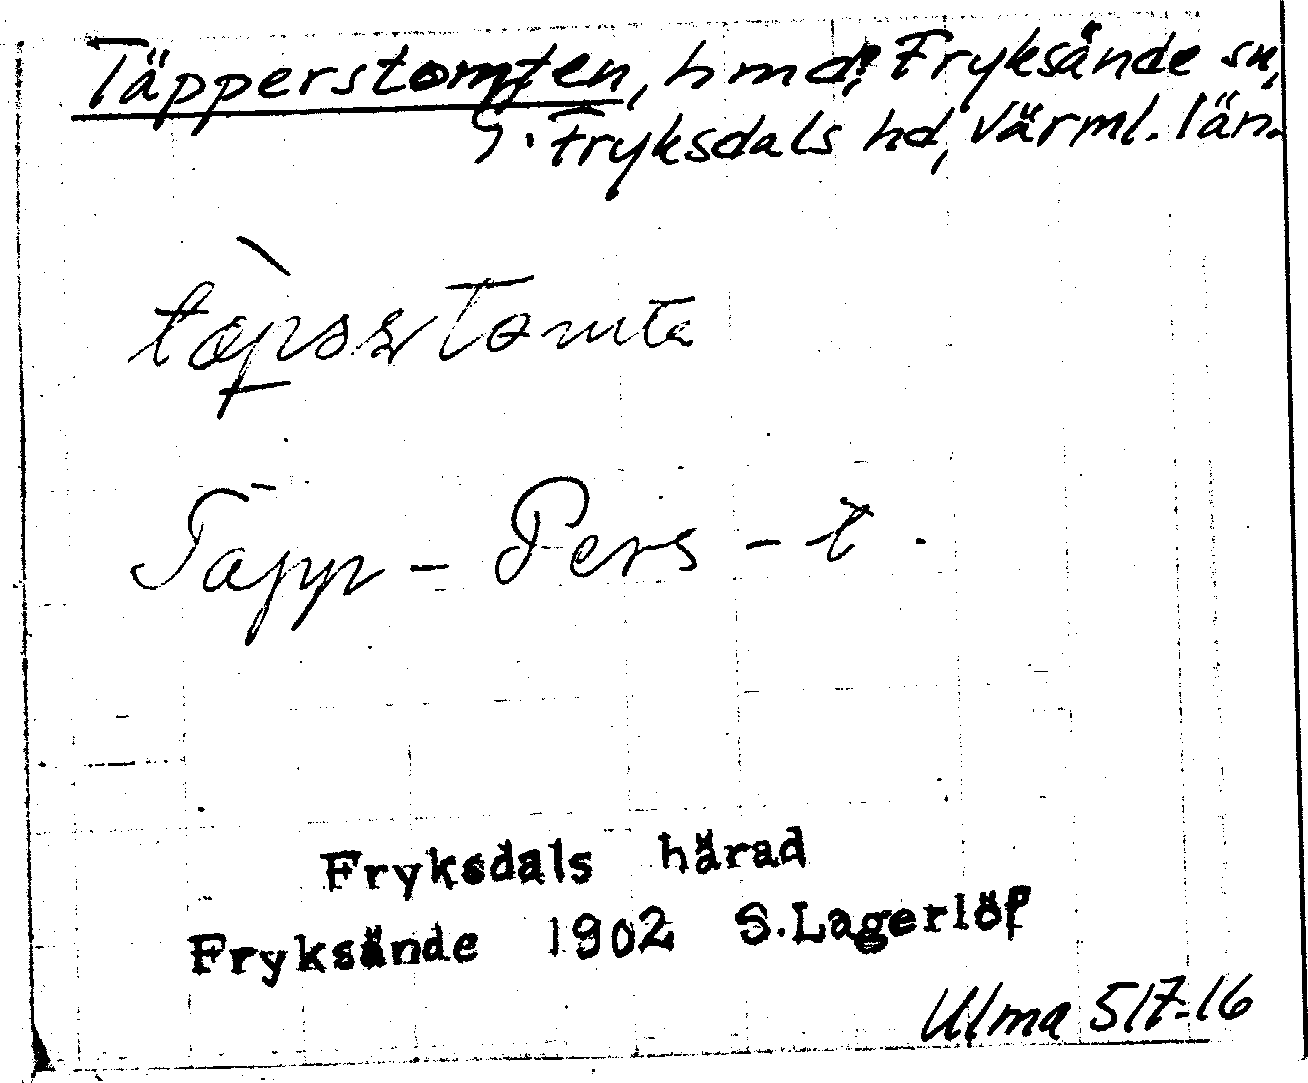 Täpperstomten, hmd? Fryksände sn,
Fryksdals hd, Värml. län.
Täpp - Pers - t.
Fryksdals härad
Fryksände 1902 S. Lagerlöf
Ulma 517-16